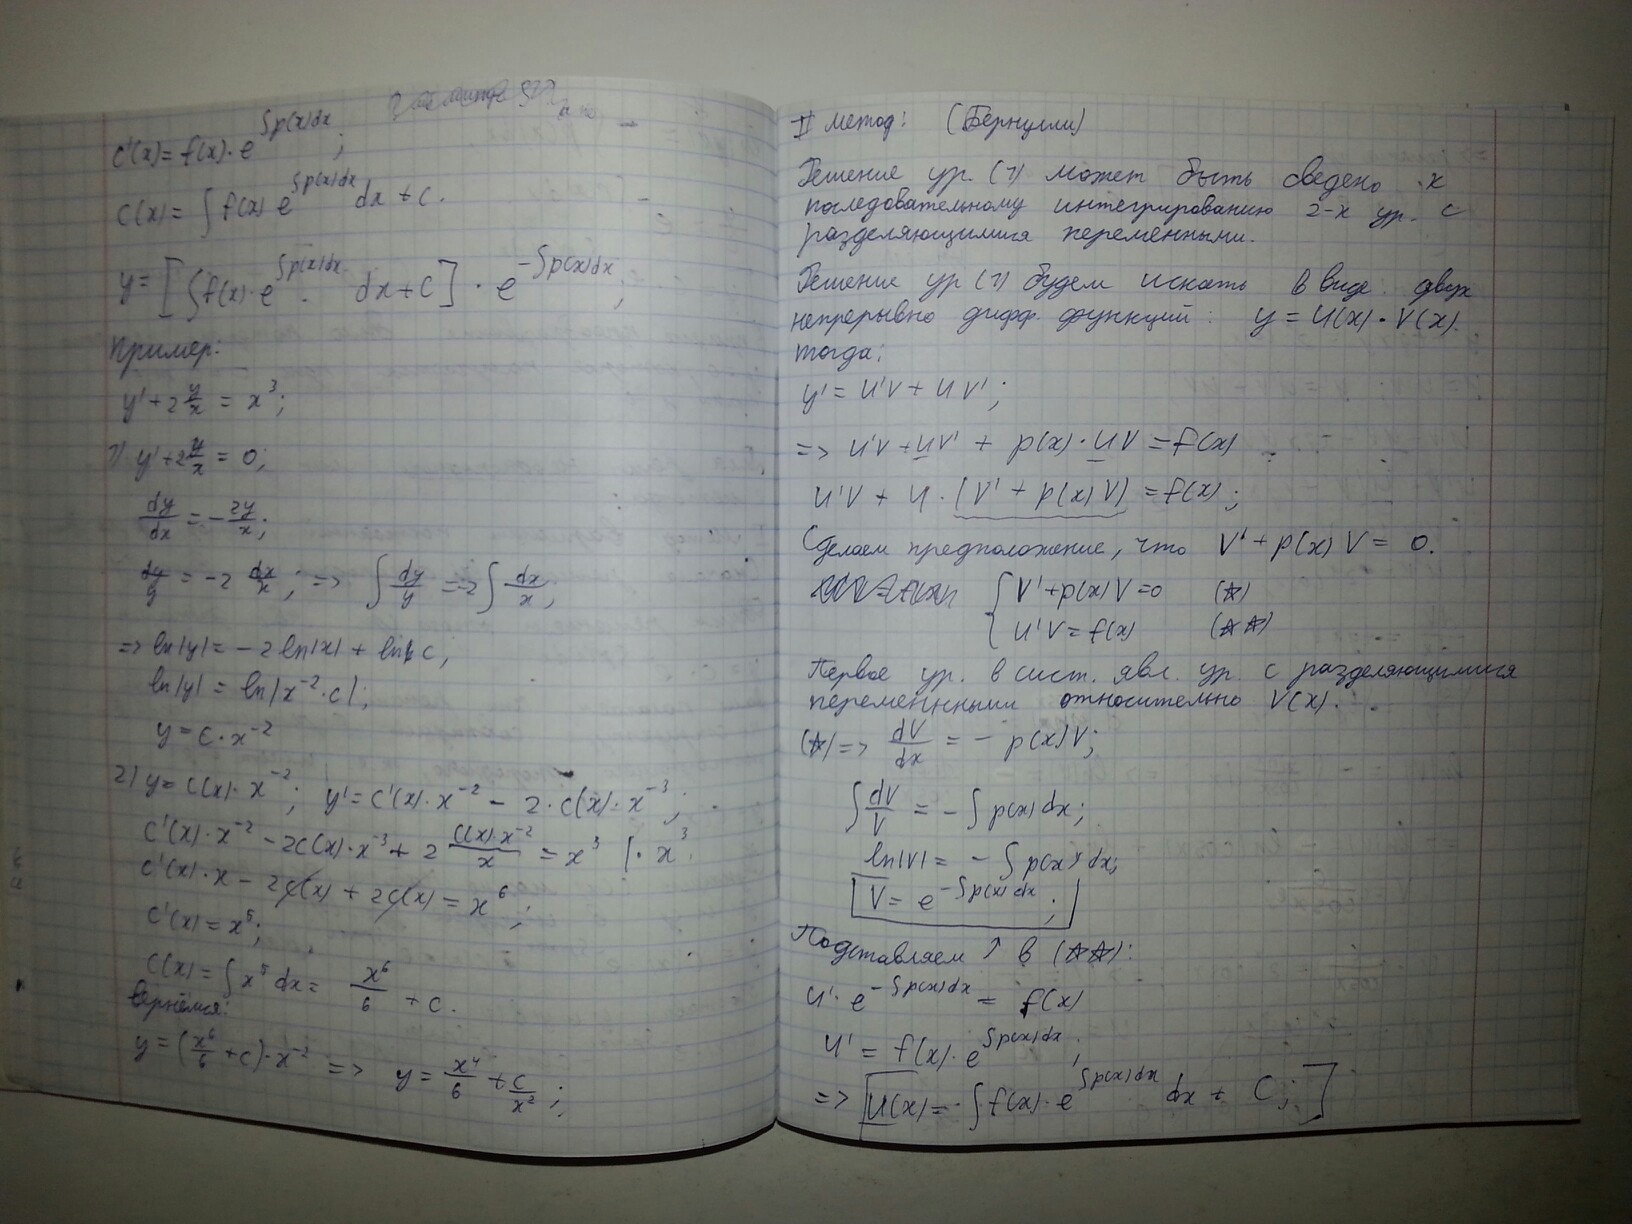 C'(x) = f(x)·e^{∫p(x)dx};
C(x) = ∫f(x) e^{∫p(x)dx} dx + C.
y = [∫f(x)·e^{∫p(x)dx} dx + C]·e^{-∫p(x)dx};
Пример:
y' + 2 y/x = x^3;
1) y' + 2 y/x = 0;
dy/dx = - 2y/x;
dy/y = -2 dx/x; => ∫ dy/y = -2 ∫ dx/x;
=> ln|y| = -2 ln|x| + ln C;
ln|y| = ln|x^{-2}·c|;
y = c·x^{-2}
2) y = C(x)·x^{-2}; y' = C'(x)·x^{-2} - 2·C(x)·x^{-3};
C'(x)·x^{-2} - 2C(x)·x^{-3} + 2 C(x)·x^{-2}/x = x^3 |·x^3
C'(x)·x - 2C(x) + 2C(x) = x^6;
C'(x) = x^5;
C(x) = ∫x^5 dx = x^6/6 + C.
Вернёмся:
y = (x^6/6 + c)·x^{-2} => y = x^4/6 + c/x^2;
II метод: (Бернулли)
Решение ур. (1) может быть сведено к
последовательному интегрированию 2-х ур. с
разделяющимися переменными.
Решение ур (1) будем искать в виде двух
непрерывно дифф. функций: y = U(x)·V(x).
тогда:
y' = U'V + UV';
=> U'V + UV' + p(x)·UV = f(x)
U'V + U·(V' + p(x)V) = f(x);
Сделаем предположение, что V' + p(x)V = 0.
{ V' + p(x)V = 0 (☆)
U'V = f(x) (☆☆)
Первое ур. в сист. явл. ур. с разделяющимися
переменнными относительно V(x).
(☆) => dV/dx = - p(x)V;
∫ dV/V = - ∫ p(x)dx;
ln|V| = - ∫ p(x)dx;
V = e^{-∫p(x)dx};
Подставляем ↑ в (☆☆):
U'·e^{-∫p(x)dx} = f(x)
U' = f(x)·e^{∫p(x)dx};
=> [U(x) = ∫f(x)·e^{∫p(x)dx} dx + C;]